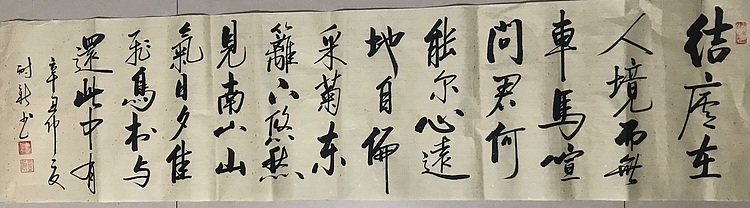 结庐在
人境而無
車馬喧
問君何
能尔心遠
地自偏
采菊东
籬下悠然
見南山山
氣日夕佳
飛鳥相与
還此中有
辛丑仲夏
书